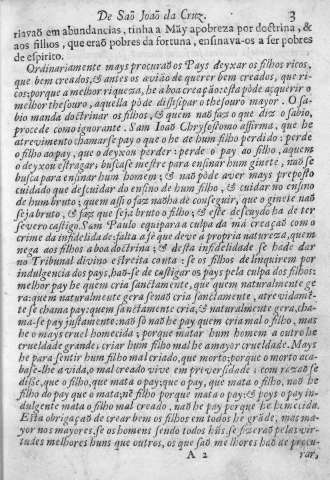 De Saõ Joaõ da Cruz. 3
riavaõ em abundancias, tinha a Mãy apobreza por doctrina, &
aos filhos, que eraõ pobres da fortuna, ensinava-os a ser pobres
de espirito.
Ordinariamente mays procuraõ os Pays deyxar os filhos ricos,
que bem creados, & antes os aviaõ de querer bem creados, que ri-
cos: porque a melhor riqueza, he a boa creaçaõ: esta póde acquerir o
melhor thesouro, aquella póde dissipar o thesouro mayor. O sa-
bio manda doctrinar os filhos, & quem naõ faz o que diz o sabio,
procede como ignorante. Sam Joaõ Chrysostomo affirma, que he
atrevimento chamarse pay o que he de hum filho perdido: perde
o filho ao pay, que o deyxou perder: perde o pay ao filho, a quem
o deyxou estragar: buscase mestre para ensinar hum ginete, naõ se
busca para ensinar hum homem; & naõ póde aver mays preposto
cuidado que descuidar do ensino de hum filho, & cuidar no ensino
de hum bruto: quem assi o faz naõ ha de conseguir, que o ginete naõ
seja bruto, & faz que seja bruto o filho; & este descuydo ha de ter
severo castigo. Sam Paulo equipara a culpa da má creaçaõ com o
crime da infidelidade: falta a fé que deve a propria natureza, quem
nega aos filhos a boa doctrina; & desta infidelidade se hade dar
no Tribunal divino estreita conta: se os filhos delinquirem por
indulgencia dos pays, haõ-se de castigar os pays pela culpa dos filhos:
melhor pay he quem cria sanctamente, que quem naturalmente ge
ra: quem naturalmente gera senaõ cria sanctamente, atrevidamẽ-
te se chama pay: quem sanctamente cria, & naturalmente gera, cha-
ma-se pay justamente: naõ só naõ he pay quem cria mal o filho, mas
he o mays cruel homecida; porque matar hum homem a outro he
crueldade grande: criar hum filho mal he a mayor crueldade. Mays
he para sentir hum filho mal criado, que morto: porque o morto aca-
base-lhe a vida, o mal creado vive em preversidade: com razaõ se
disse, que o filho, que mata o pay: que o pay, que mata o filho, naõ he
filho do pay que o mata; nẽ filho porque mata o pay: & pays o pay in-
dulgente mata o filho mal creado, naõ he pay porque he homecida.
Esta obrigaçaõ de crear bem os filhos em todos he grãde, mas ma-
yor nos mayores, se os homens sendo todos hũs, se fizeraõ pelas vir-
tudes melhores huns que outros, os que saõ melhores haõ de procu-
A 2 rar,